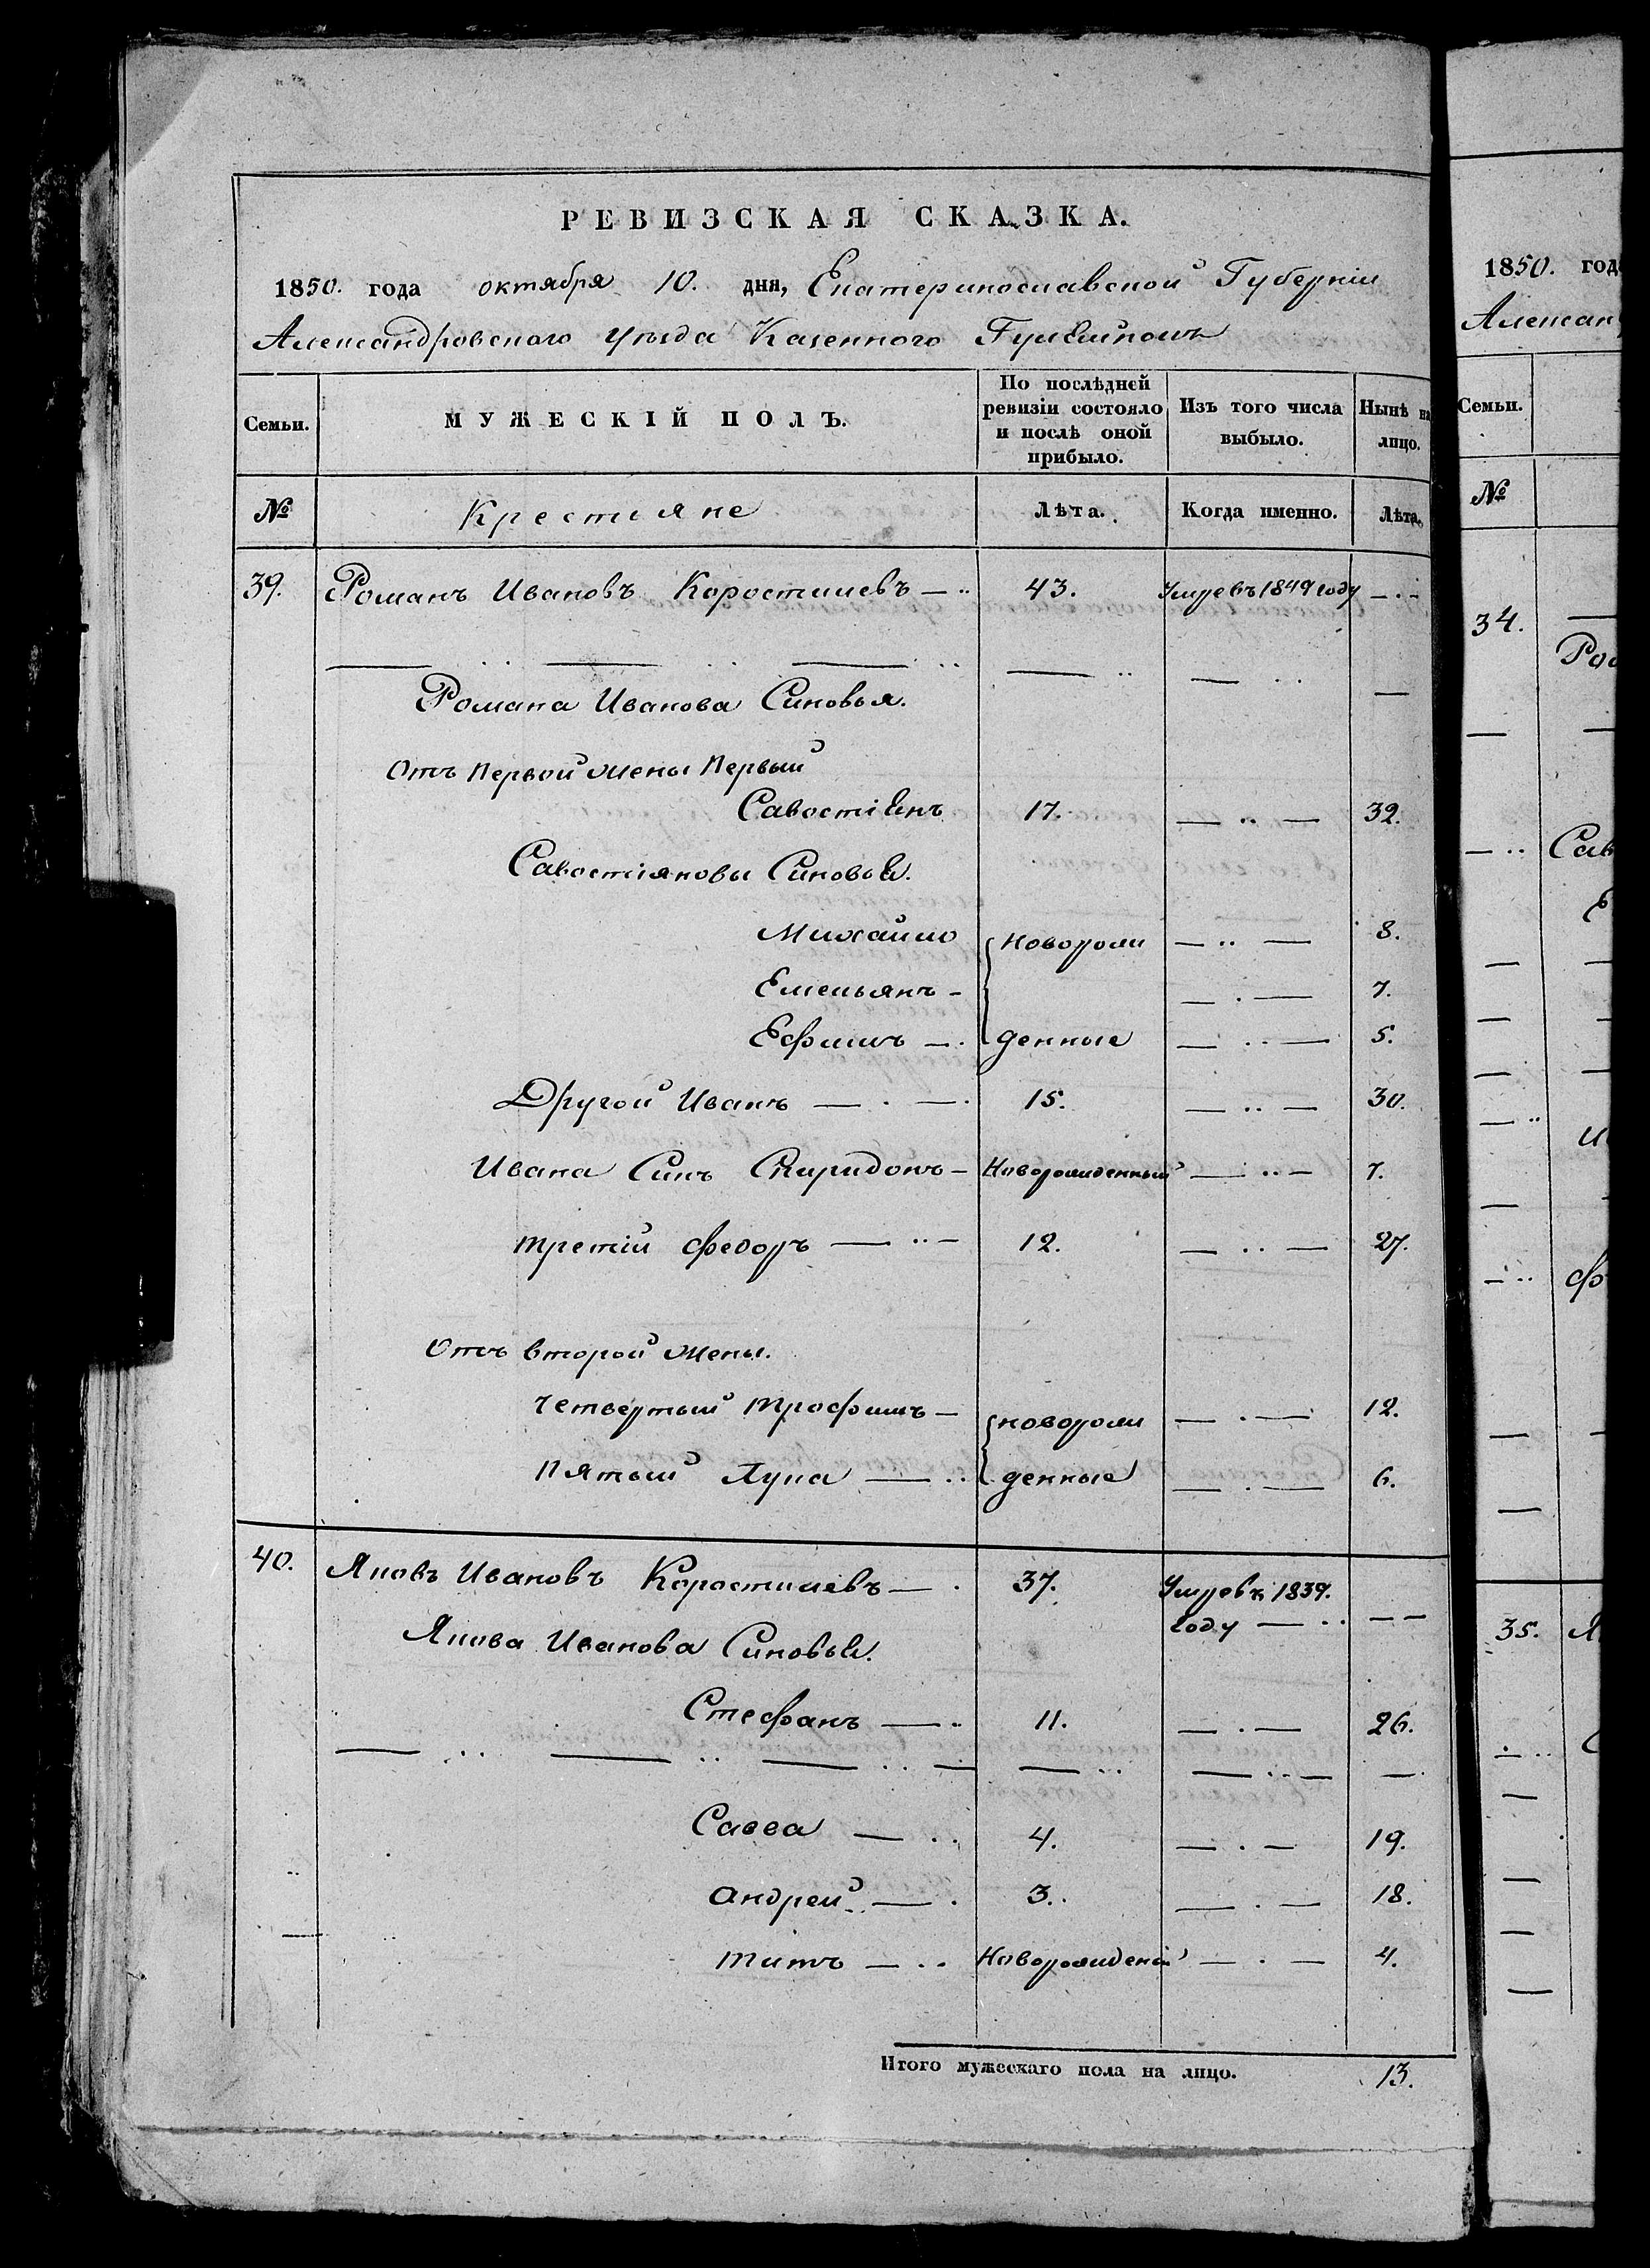 РЕВИЗСКАЯ СКАЗКА.
1850. года октября 10. дня, Екатеринославской Губерніи
Александровского Уѣзда Казенного
Семьи.
МУЖЕСКІЙ ПОЛЪ.
По послѣдней ревизіи состояло и послѣ оной прибыло.
Изъ того числа выбыло.
Нынѣ на лицо.
№
Крестьяне
Лѣта.
Когда именно.
Лѣта.
39. Романъ Ивановъ Коростилевъ — 43. Умре въ 1849 году —
Романа Иванова Синовья.
Отъ Первой жены Первый
Савостіянъ 17. — 32.
Савостіяновы Синовья.
Михайло новорож — 8.
Емельянъ — 7.
Ефимъ — денные — 5.
Другой Иванъ — 15. — 30.
Ивана Синъ Спиридонъ — Новорожденный — 7.
третій Федоръ — 12. — 27.
Отъ второй жены.
Четвертый Трофимъ — новорож — 12.
Пятый Лука — денные — 6.
40. Яковъ Ивановъ Коростилевъ — 37. Умре въ 1839.
году — —
Якова Иванова Синовья.
Стефанъ — 11. — 26.
Савва — 4. — 19.
Андрей — 3. — 18.
Титъ — Новорожденій — 4.
Итого мужескаго пола на лицо. 13.
1850. год
Алексан
Семьи.
№
34.
Ро
Сав
Е
И
Ф
35. Я